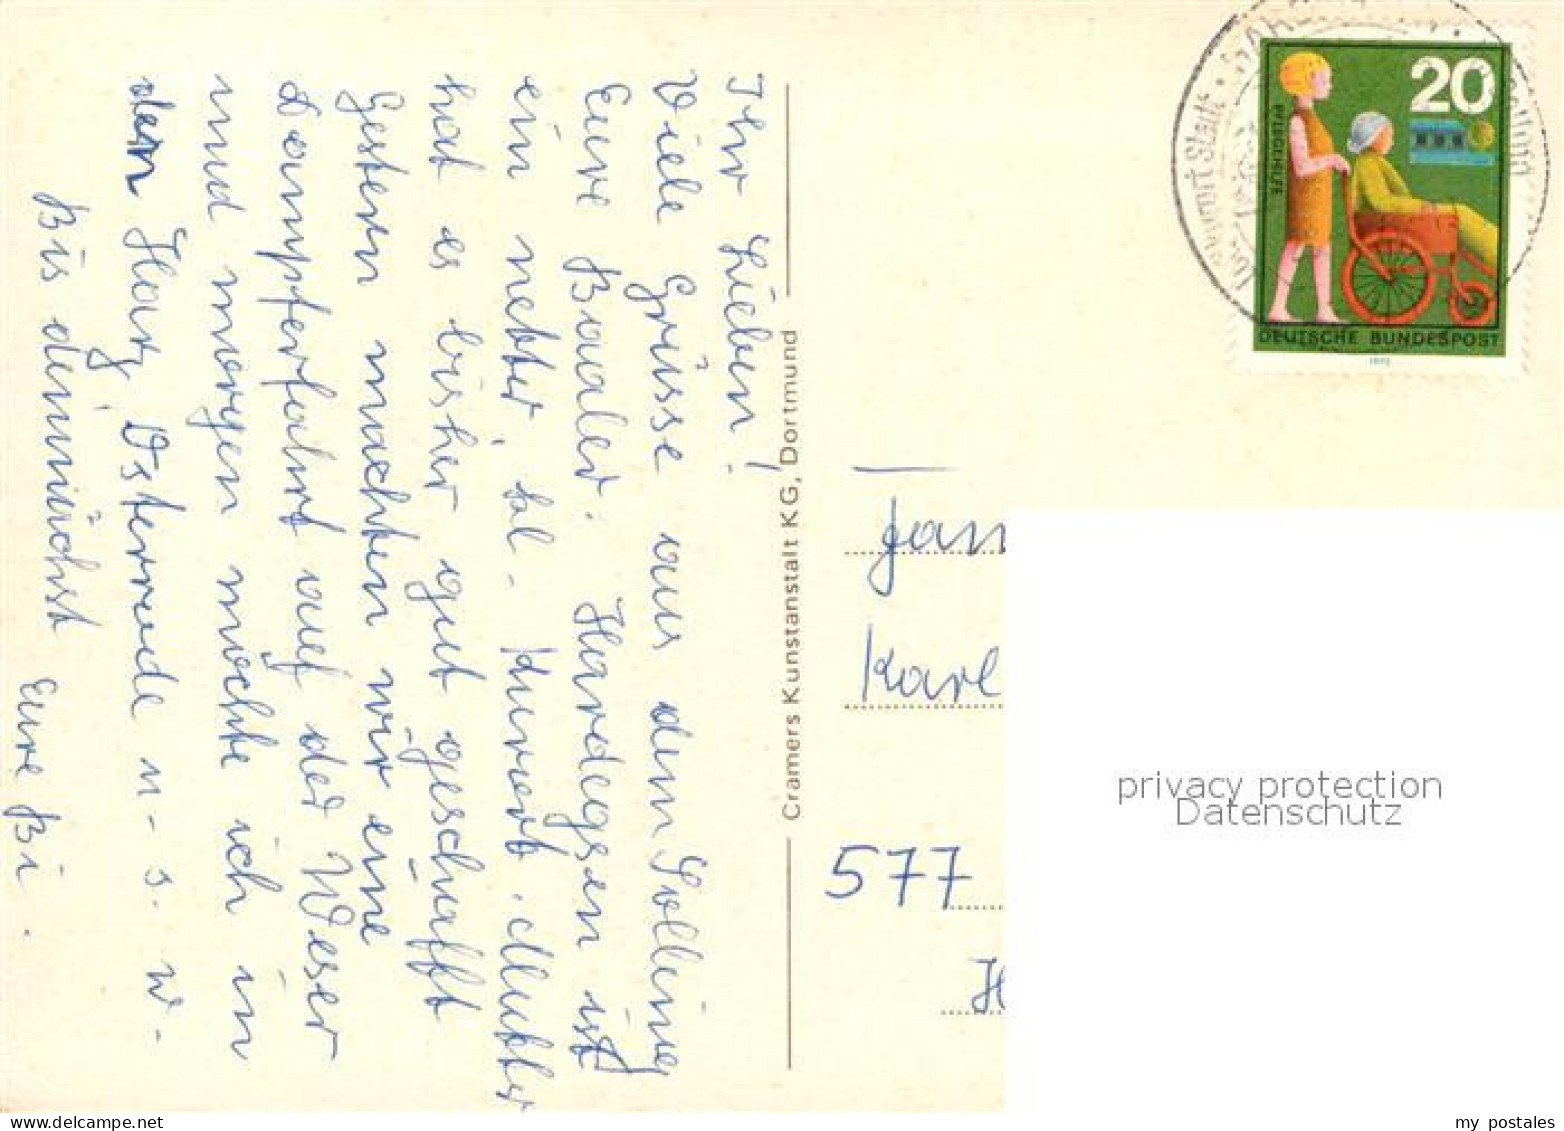 Ihr Lieben!
Viele Grüsse aus dem Solling
Eure Baaler. Hardegsen ist
ein netter, kl. Kurort. Mutter
hat es bisher gut geschafft
Gestern machten wir eine
Dampferfahrt auf der Weser
und morgen möchte ich in
den Harz, Osterode u. s. w.
Bis demnächst Eure Bi.
Cramers Kunstanstalt KG, Dortmund
20
PFLEGEHILFE
DEUTSCHE BUNDESPOST
1970
Karl
577
privacy protection
Datenschutz
delcampe.net
my_postales